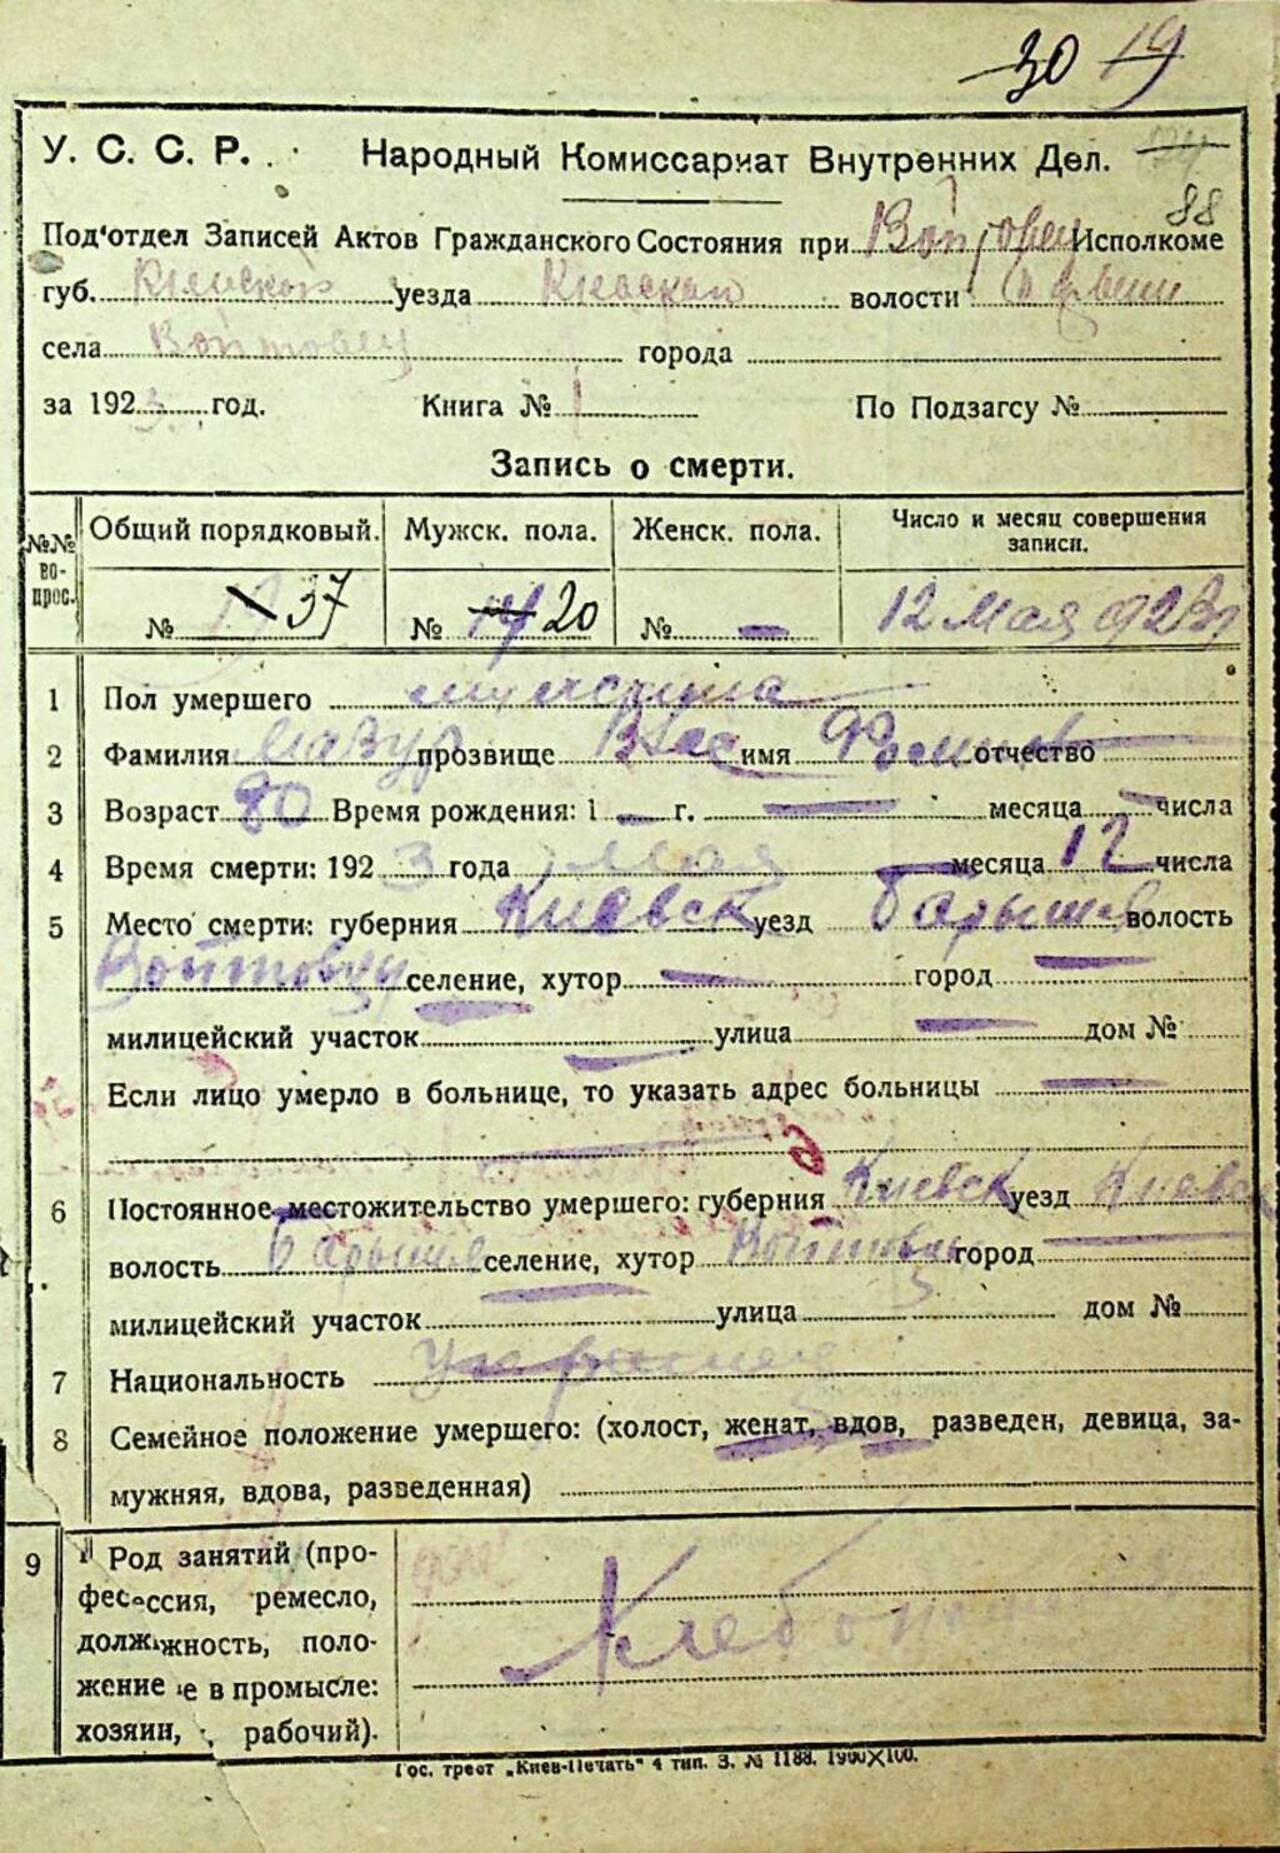 30 19
У. С. С. Р. Народный Комиссариат Внутренних Дел.
88
Под'отдел Записей Актов Гражданского Состояния при Исполкоме
губ. Киевской уезда Киевской волости
села Войтовец города
за 1923 год. Книга № 1 По Подзагсу №
Запись о смерти.
№№ во- прос. Общий порядковый. Мужск. пола. Женск. пола. Число и месяц совершения записи.
№ 37 № 20 № — 12 Мая 923 г
1 Пол умершего мужчина
2 Фамилия Мазур прозвище имя отчество
3 Возраст 80 Время рождения: 1 — г. — месяца — числа
4 Время смерти: 192 3 года Мая месяца 12 числа
5 Место смерти: губерния Киевск уезд Барышев волость
Войтовцы селение, хутор — город —
милицейский участок — улица — дом №
Если лицо умерло в больнице, то указать адрес больницы —
6 Постоянное местожительство умершего: губерния Киевск уезд Киевск
волость селение, хутор Войтовцы город —
милицейский участок улица дом №
7 Национальность
8 Семейное положение умершего: (холост, женат, вдов, разведен, девица, за-
мужняя, вдова, разведенная)
9 Род занятий (про-
фессия, ремесло,
должжность, поло-
жение е в промысле:
хозяин, рабочий).
Гос. трест „Киев-Печать" 4 тип. З. № 1188. 1900×100.